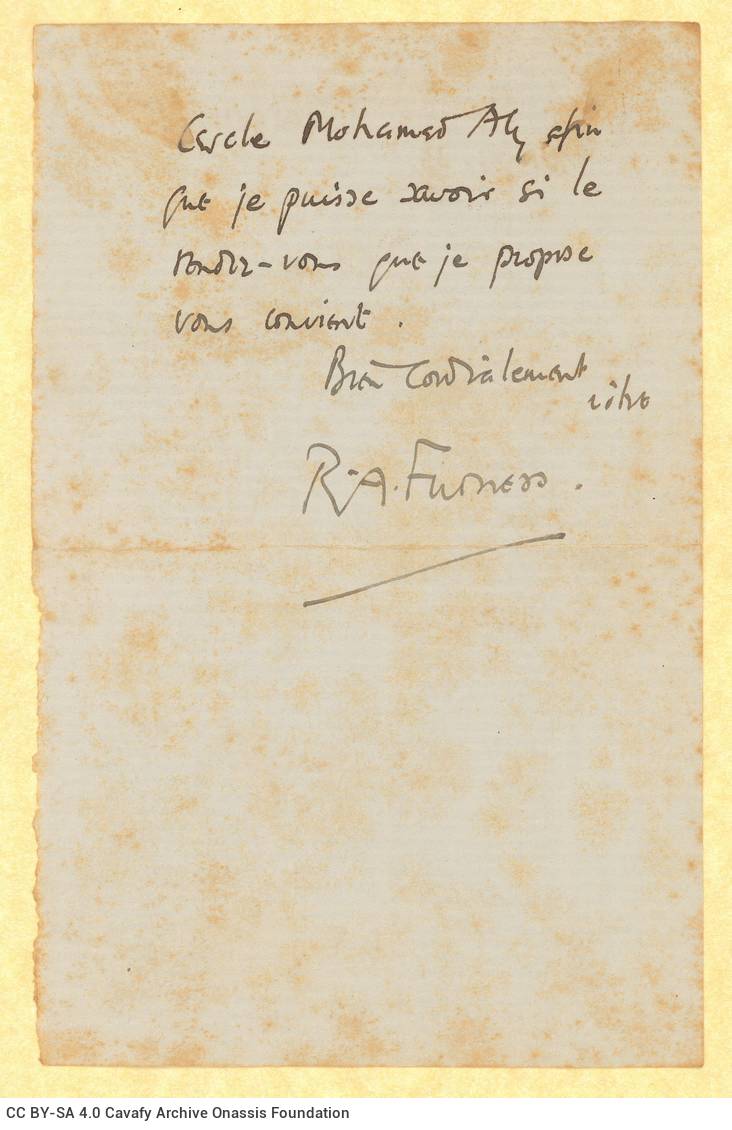 Cercle Mohamed Aly afin
que je puisse savoir si le
rendez-vous que je propose
vous convient.
Bien Cordialement
vôtre
R.A. Furness.
CC BY-SA 4.0 Cavafy Archive Onassis Foundation